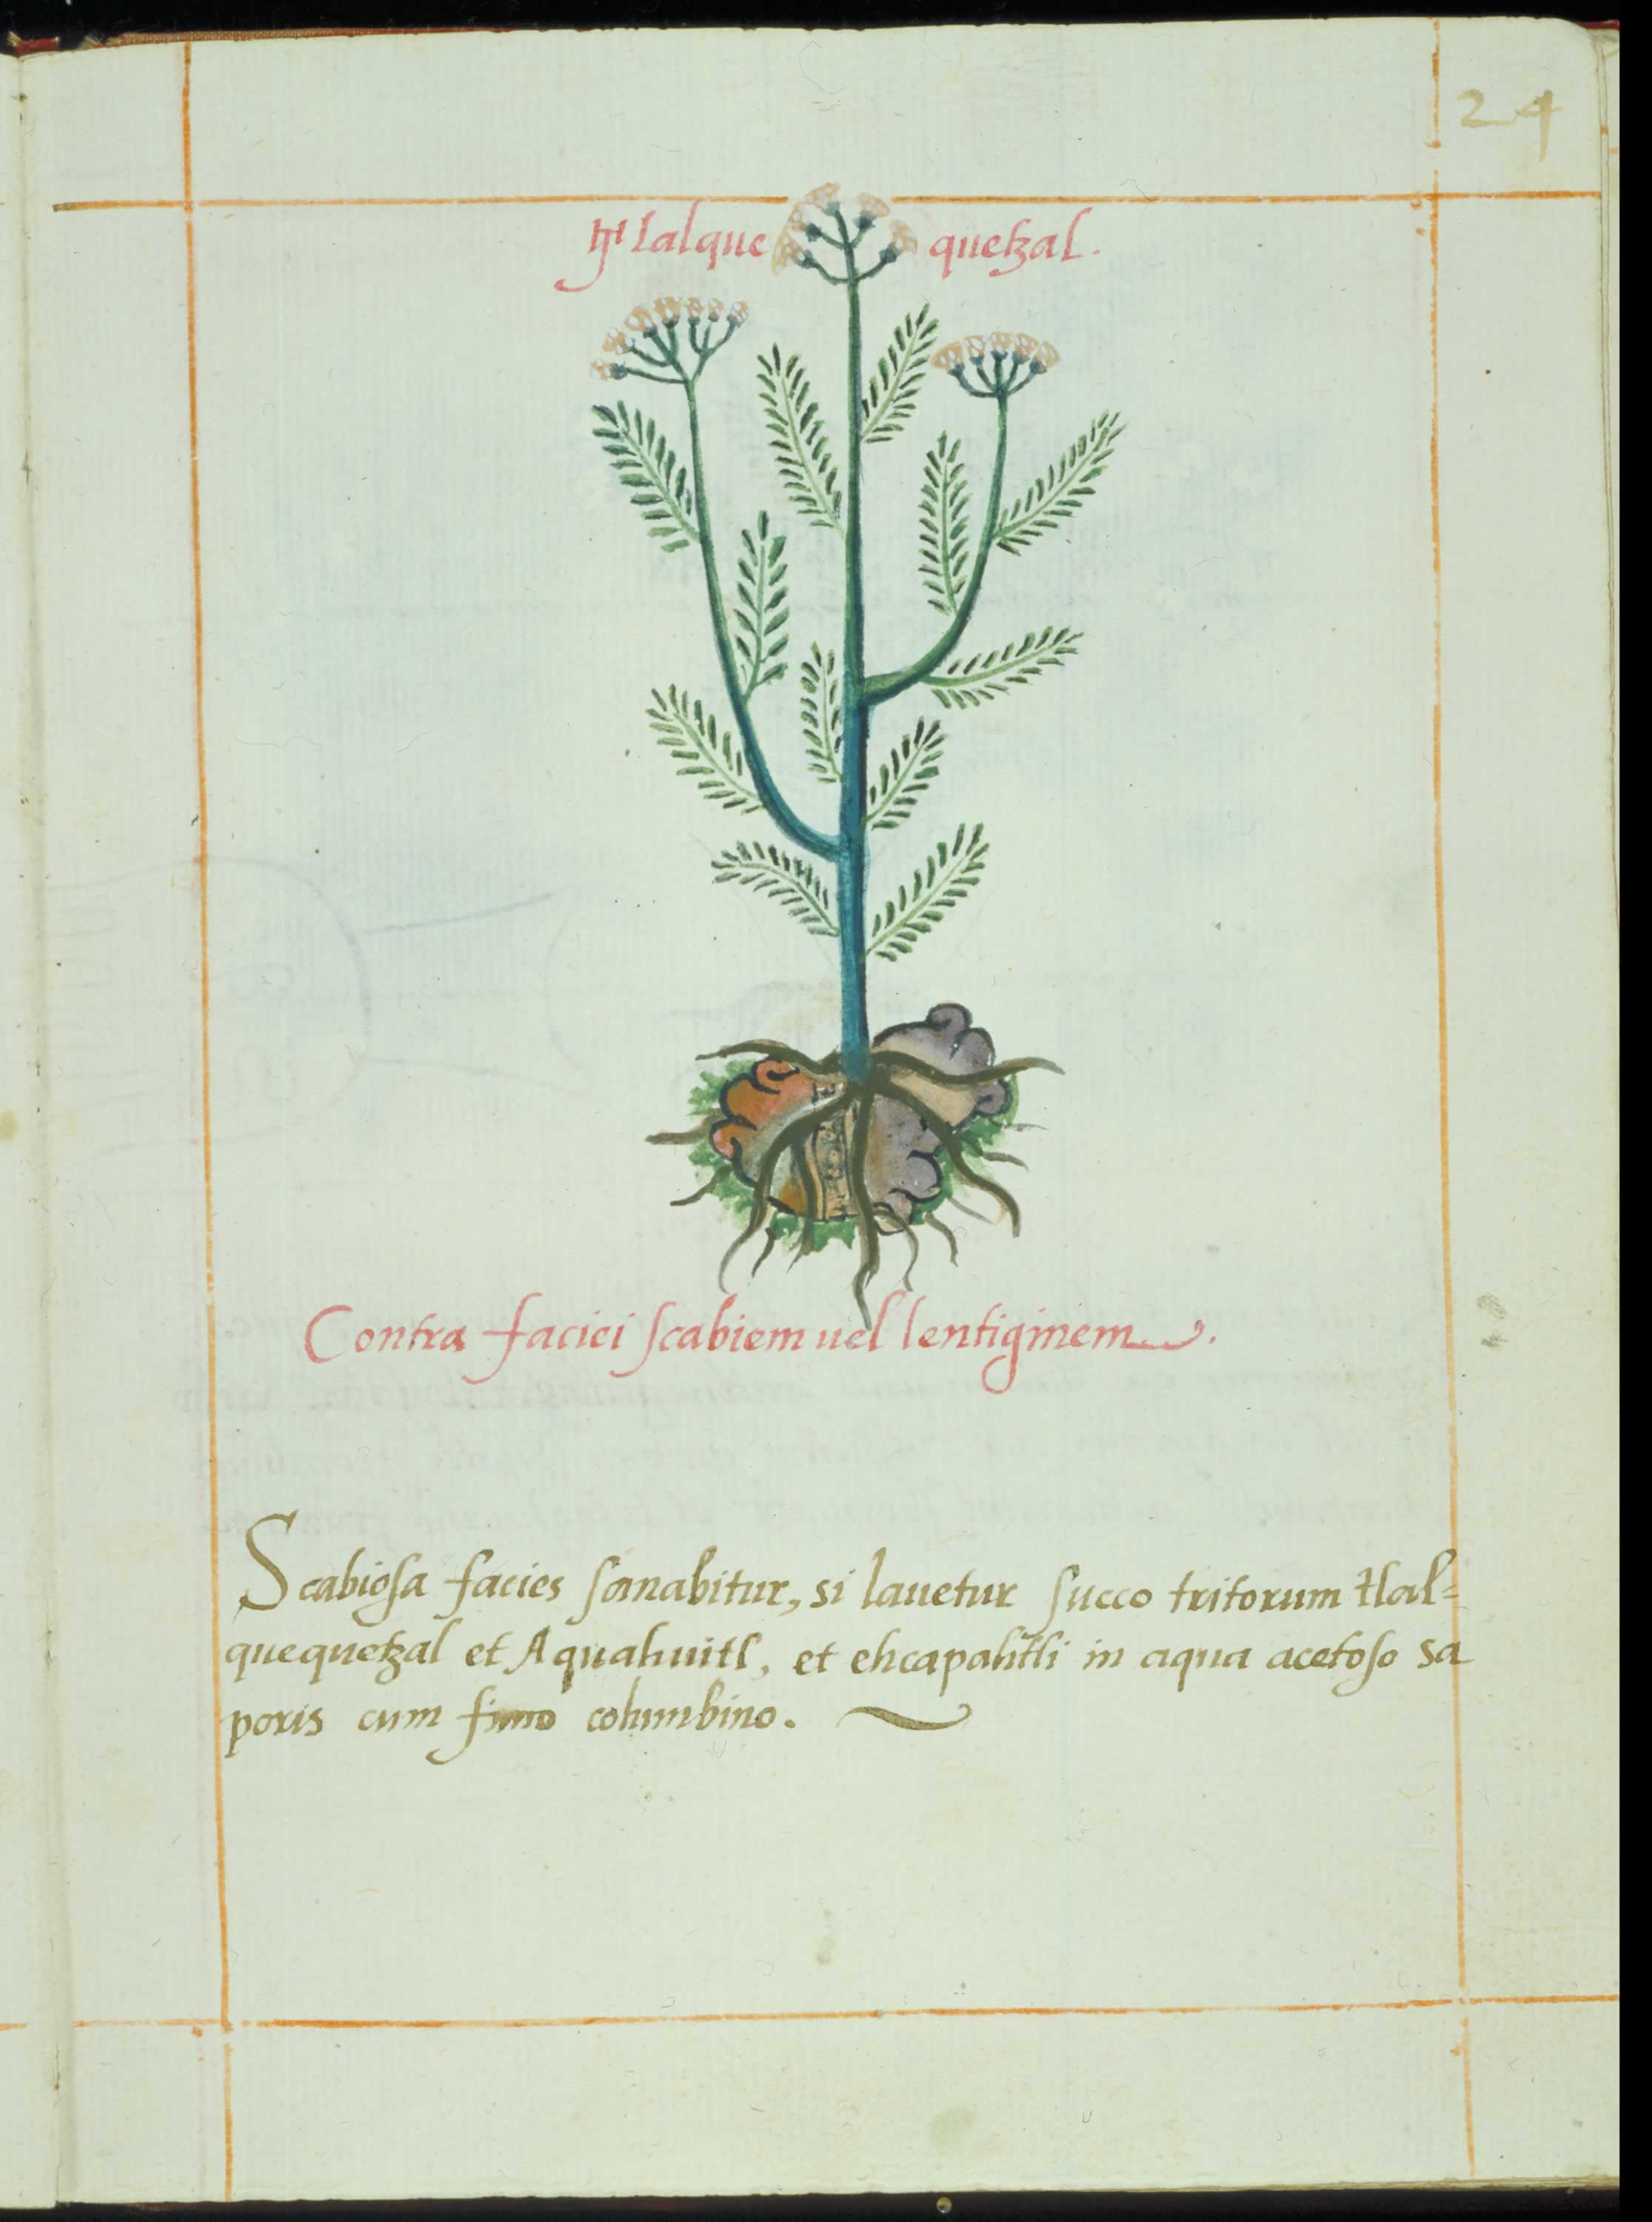 24
Tlalque quetzal.
Contra faciei scabiem uel lentiginem.
Scabiosa facies sanabitur, si lauetur succo tritorum tlal=
quequetzal et Aquahuitl, et ehcapahtli in aqua acetoso sa
poris cum fimo columbino.